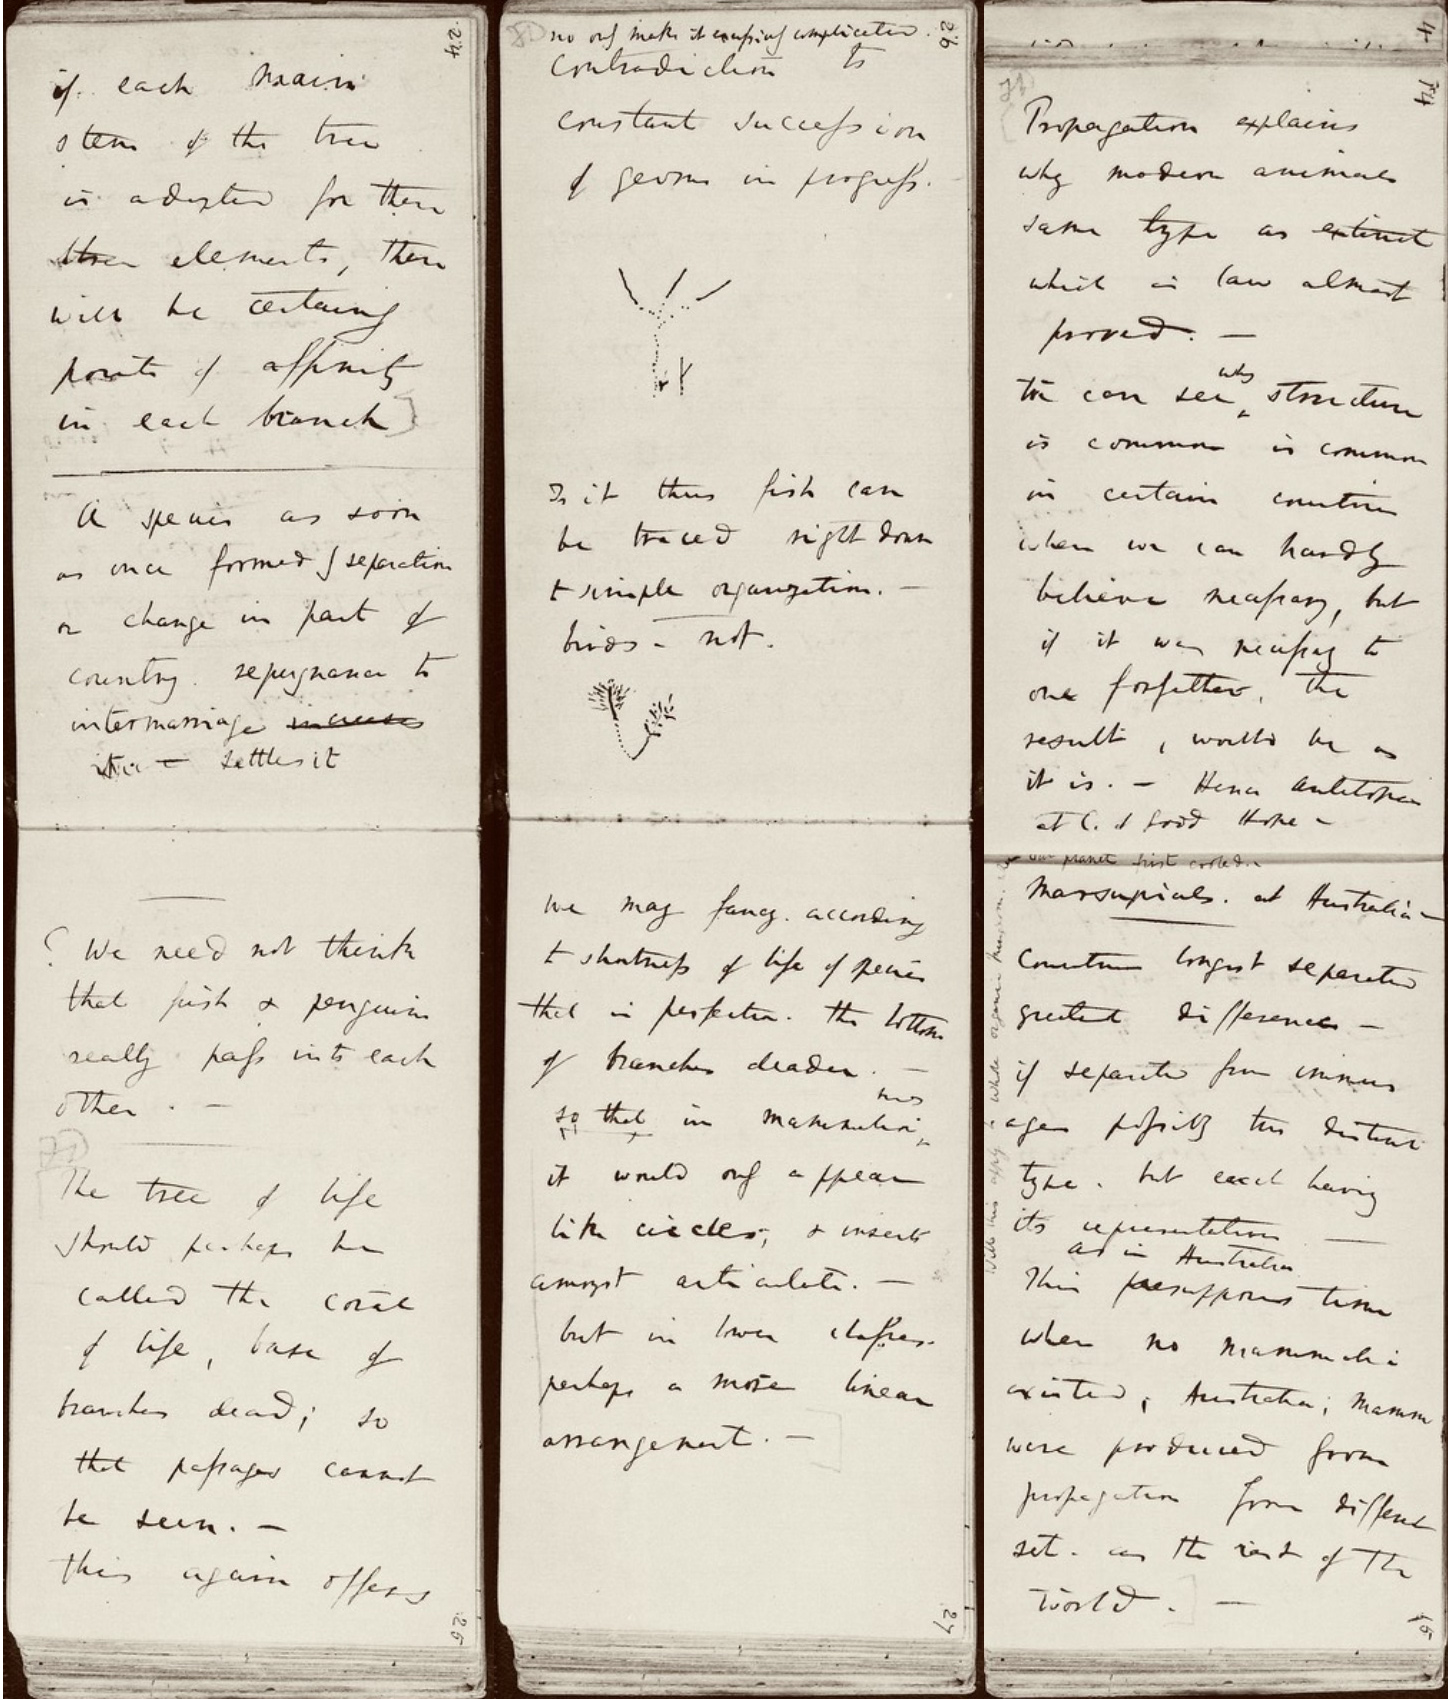 24
if each main
stem of the tree
is adapted for these
three elements, there
will be certainly
points of affinity
in each branch
A species as soon
as once formed by separation
or change in part of
country. repugnance to
intermarriage increases
it — settles it
? We need not think
that fish & penguins
really pass into each
other. —
The tree of life
should perhaps be
called the coral
of life, base of
branches dead; so
that passages cannot
be seen. —
this again offers
25
26
no only makes it excessively complicated.
contradiction to
constant succession
of germs in progress.
Is it thus fish can
be traced right down
to simple organization. —
birds – not.
We may fancy. according
to shortness of life of species
that in perfection. the bottom
of branches deaden. —
so that in mammalia
it would only appear
like circles; & insects
amongst articulata. —
but in lower classes
perhaps a more linear
arrangement. —
27
14
Propagation explains
why modern animals
same type as extinct
which is law almost
proved. —
We can see why structure
is common is common
in certain countries
when we can hardly
believe necessary, but
if it was necessary to
one forefather, the
result, would be as
it is. — Hence Antelopes
at C. of Good Hope —
our planet first cooled. —
Marsupials. at Australia —
Countries longest separated
greatest differences —
if separated from immens
ages possibly two distinct
type. but each having
its representatives —
as in Australia
This presupposes time
when no mammalia
existed; Australia; Mamm
were produced from
propagation from different
set. as the rest of the
world. —
15